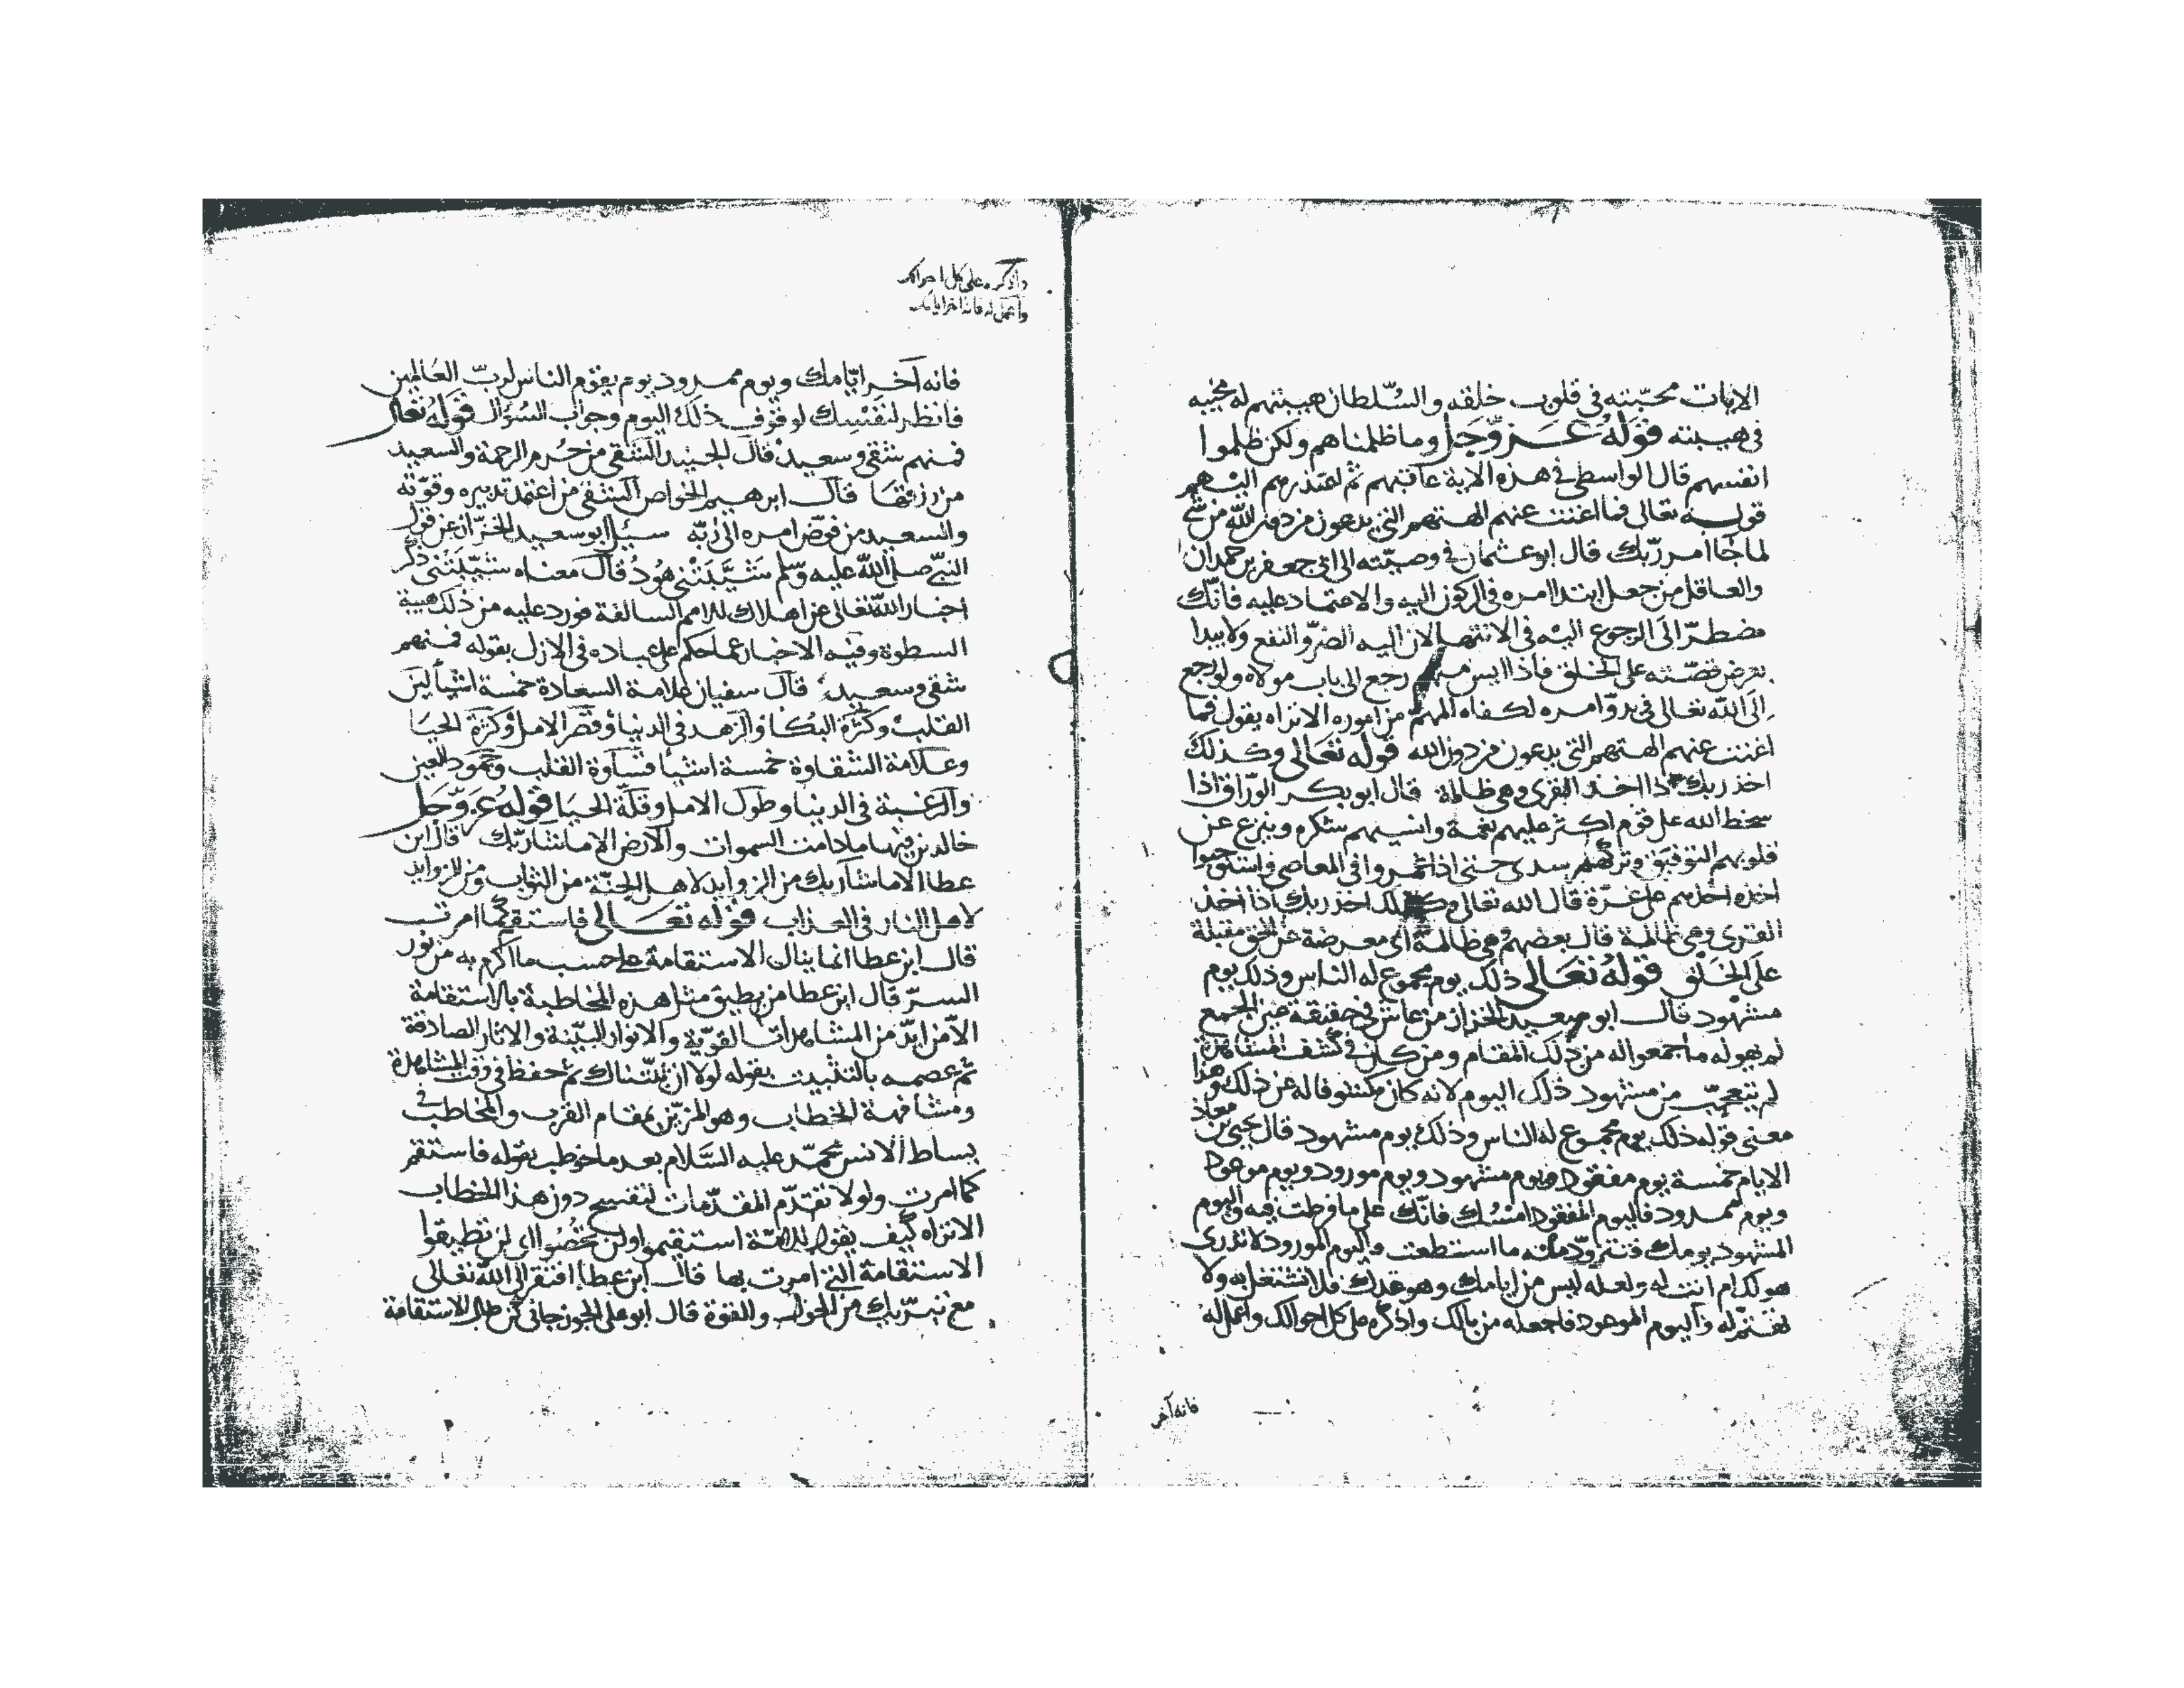 الايات محبّته في قلوب خلقه والسّلطان هيبتهم له محبّة
في هيبته قوله عزّ وجلّ وما ظلمناهم ولكن ظلموا
انفسهم قال الواسطى في هذه الاية عاقبهم ثم اعتذر منهم اليهم
قوله تعالى فما اغنت عنهم الهتهم التى يدعون من دون الله من شئ
لما جا امر ربّك قال ابو عثمان في وصيّته الى ابي جعفر بن حمدان
والعاقل من جعل ابتدا امره في الركون اليه والاعتماد عليه فانّك
مضطرّ الى الرجوع اليه في الانتها لان اليه الضرّ والنفع ولا يبدا
بعرض قصّته على الخلق فاذا ايس منهم رجع الى باب مولاه ولو رجع
الى الله تعالى في بدوّ امره لكفاه المهمّ من اموره الا تراه يقول فما
اغنت عنهم الهتهم التى يدعون من دون الله قوله تعالى وكذلك
اخذ ربك اذا اخذ القرى وهى ظالمة قال ابو بكر الورّاق اذا
سخط الله على قوم اكثر عليهم نعمة وانسيهم شكره وينزع عن
قلوبهم التوفيق وتركهم سدى حتى اذا تمروا في المعاصى واستوجبوا
اخذه اخذهم على غرّة قال الله تعالى وكذلك اخذ ربك اذا اخذ
القرى وهى ظالمة قال بعضهم وهى ظالمة اى معرضة عن الحق مقبلة
على الخلق قوله تعالى ذلك يوم مجموع له الناس وذلك يوم
مشهود قال ابو سعيد الخراز من عاش في حقيقة عين الجمع
لم يهوله ما جمعوا له من ذلك المقام ومن كان في كشف المشاهدة
لم يتعجّب من مشهود ذلك اليوم لانه كان مكشوفا له عن ذلك وهذا
معنى قوله ذلك يوم مجموع له الناس وذلك يوم مشهود قال يحيى بن معاذ
الايام خمسة يوم مفقود ويوم مشهود ويوم مورود ويوم موعود
ويوم ممدود فاليوم المفقود امسك فانّك على ما فرطت فيه واليوم
المشهود يومك فتزوّد منه ما استطعت واليوم المورود لا تدرى
هو لك ام انت له ولعله ليس من ايامك وهو غدك فلا تشتغل به ولا
تهتمّ له واليوم الموعود فاجعله من بالك واذكره على كل احوالك واعمل له
فانه آخر
واذكره على كل احوالك
واعمل له فانه اخر ايامك
فانه آخر ايّامك ويوم ممدود يوم يقوم الناس لربّ العالمين
فانظر لنفسك لوقوف ذلك اليوم وجواب السّؤال قوله تعالى
فمنهم شقى وسعيد قال الجنيد الشقى من حُرم الرحمة والسعيد
من رزقها قال ابرهيم الخواص الشقى من اعتمد تدبيره وقوّته
والسعيد من فوّض امره الى ربّه سئل ابو سعيد الخرّاز عن قول
النبىّ صلى الله عليه وسلم شَيَّبَتْنى هُودُ قال معناه شيّبتنى ذكر
اخبار الله تعالى عن اهلاك للامم السالفة فورد عليه من ذلك هيبة
السطوة وفيه الاخبار عما حكم على عباده في الازل بقوله فمنهم
شقى وسعيد قال سفيان علامة السعادة خمسة اشيا لين
القلب وكثرة البكا والزهد في الدنيا وقصر الامل وكثرة الحيا
وعلامة الشقاوة خمسة اشيا قساوة القلب وجمود العين
والرغبة في الدنيا وطول الامل وقلّة الحيا قوله عز وجل
خالدين فيها ما دامت السموات والارض الا ما شا ربّك قال ابن
عطا الا ما شا ربك من الزوايد لاهل الجنّة من الثواب ومن الزوايد
لاهل النار في العذاب قوله تعالى فاستقم كما امرت
قال ابن عطا انما ينال الاستقامة على حسب ما اكرم به من نور
السرّ قال ابن عطا من يطيق مثل هذه المخاطبة بالاستقامة
الا من ايّد من المشاهدات القويّة والانوار البيّنة والاثار الصادقة
ثم عصمه بالتثبيت بقوله لولا ان ثبّتناك ثم حفظ في وقت المشاهدة
ومشافهة الخطاب وهو المزيّن بمقام القرب والمخاطب في
بساط الانس محمّد عليه السّلام بعد ما خوطب بقوله فاستقم
كما امرت ولولا تقدّم المقدّمات لتفسخ دون هذا الخطاب
الا تراه كيف يقول للامّة استقيموا ولن تحصوا اى لن تطيقوا
الاستقامة التى امرت بها قال ابن عطا افتقر الى الله تعالى
مع تبرّيك من الحول والقوة قال ابو على الجوزجانى كن طالب الاستقامة